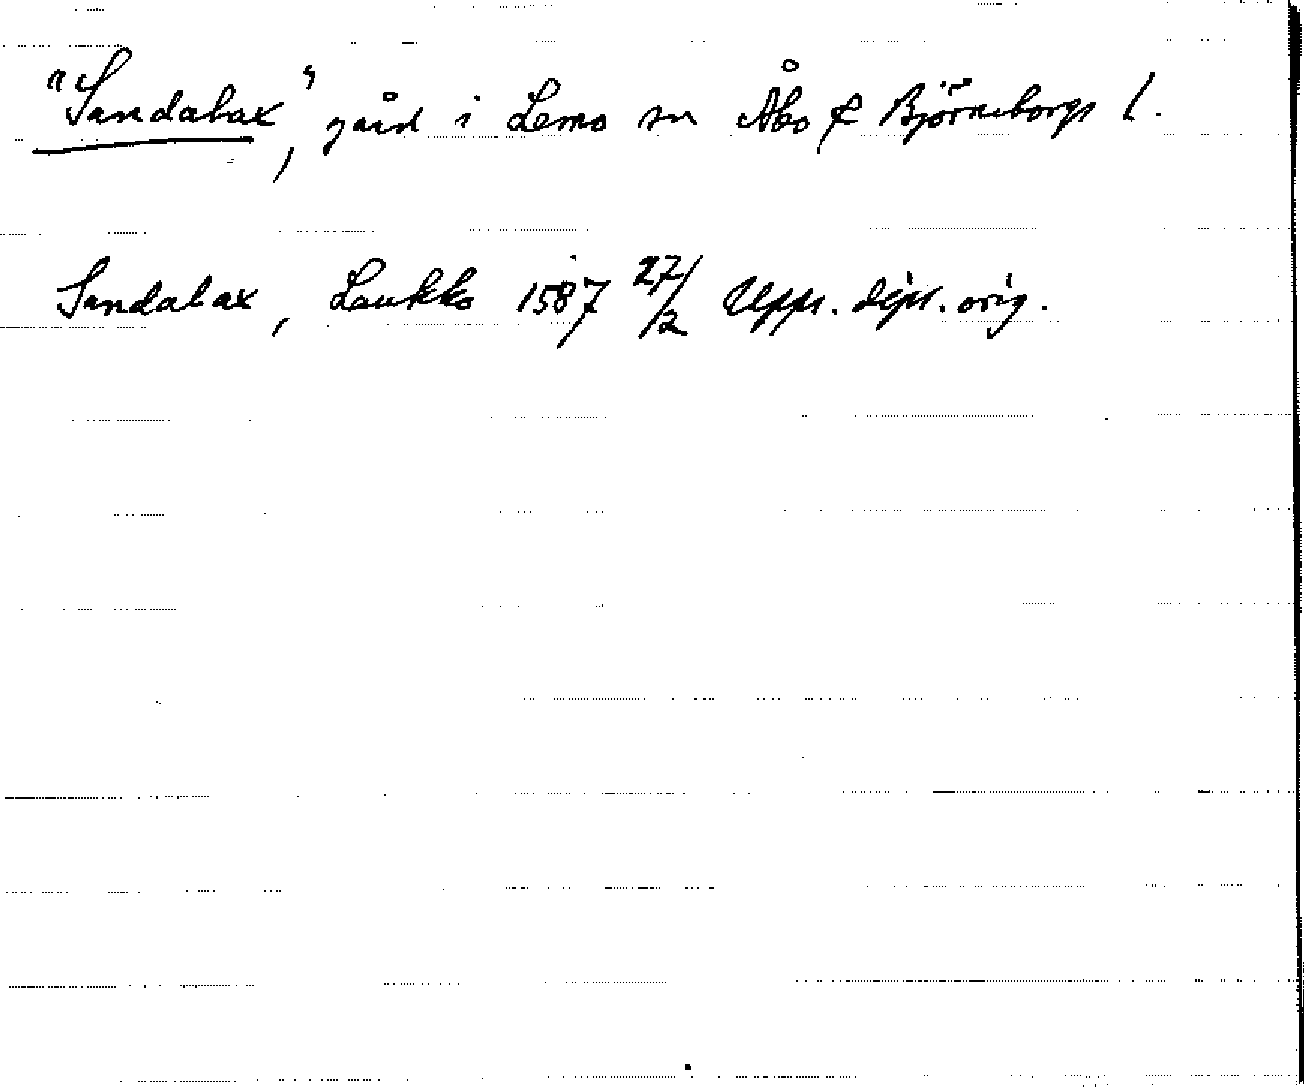 "Sandabax", gård i Lemo sn Åbo & Björneborgs l.
Sandabax, Laukko 1587 27/2 Upps. dipl. orig.